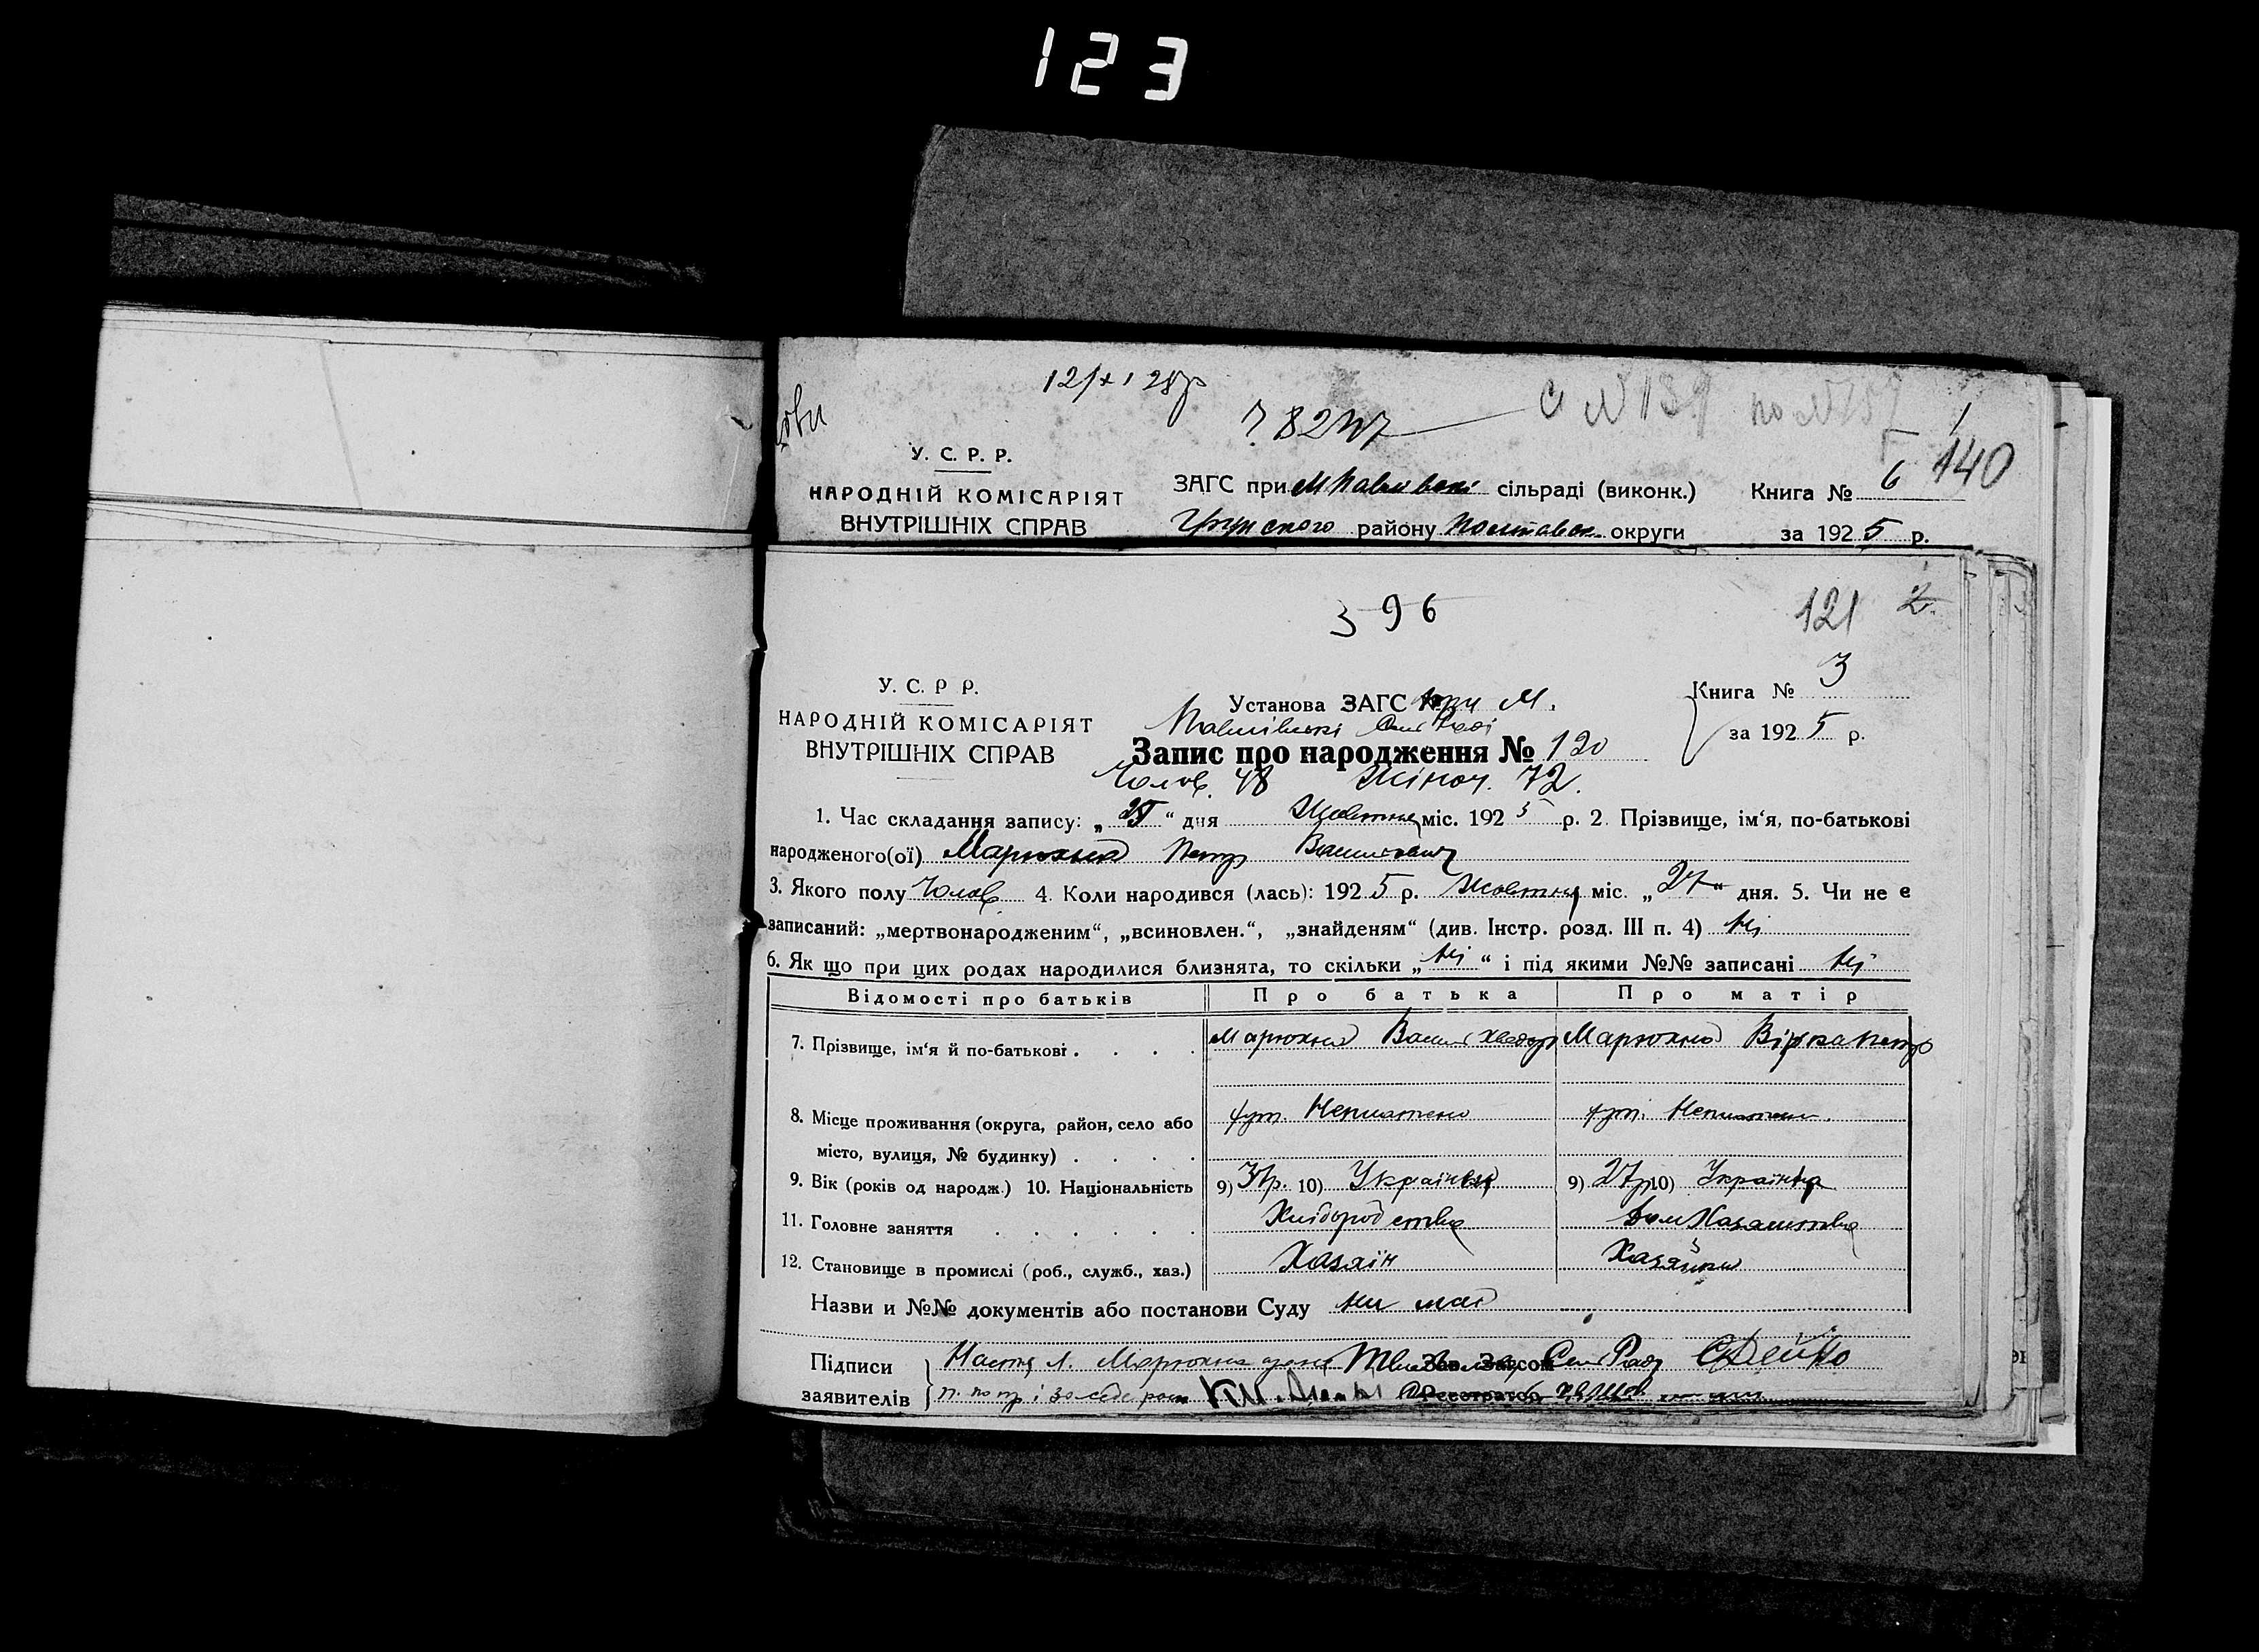 123
У. С. Р. Р.
НАРОДНІЙ КОМІСАРІЯТ
ВНУТРІШНІХ СПРАВ
ЗАГС при М Павлівські сільраді (виконк.)
району Полтавськ округи
Книга № 6
140
за 1925 р.
396
121
2
У. С. Р Р.
НАРОДНІЙ КОМІСАРІЯТ
ВНУТРІШНІХ СПРАВ
Установа ЗАГС при М.
Павлівські Сель Раді
Книга № 3
за 1925 р.
Запис про народження № 120
Чолов. 48 Жіноч. 72.
1. Час складання запису: „ “ дня Жовтня міс. 1925 р. 2. Прізвище, ім‘я, по-батькові
народженого(ої) Марюхна Петр Васильович
3. Якого полу Чолов. 4. Коли народився (лась): 1925 р. Жовтня міс. „27“ дня. 5. Чи не є
записаний: „мертвонародженим“, „всиновлен.“, „знайденям“ (див. Інстр. розд. III п. 4) Ні
6. Як що при цих родах народилися близнята, то скільки „Ні“ і під якими №№ записані Ні
Відомості про батьків Про батька Про матір
7. Прізвище, ім‘я й по-батькові . . . . Марюхна Василь Хведор Марюхна Вірка Петр
8. Місце проживання (округа, район, село або
місто, вулиця, № будинку) . . . .
хут. хут.
9. Вік (років од народж.) 10. Національність 9) 37р. 10) Українець 9) 27р 10) Українка
11. Головне заняття . . . . . . Хліборобство Дом Хазяйство
12. Становище в промислі (роб., служб., хаз.) Хазяїн Хазяйка
Назви и №№ документів або постанови Суду Ни має
Підписи
заявителів
Настя Л. Марюхна
Зав. Загсом
Сель Раду
Реєстратор